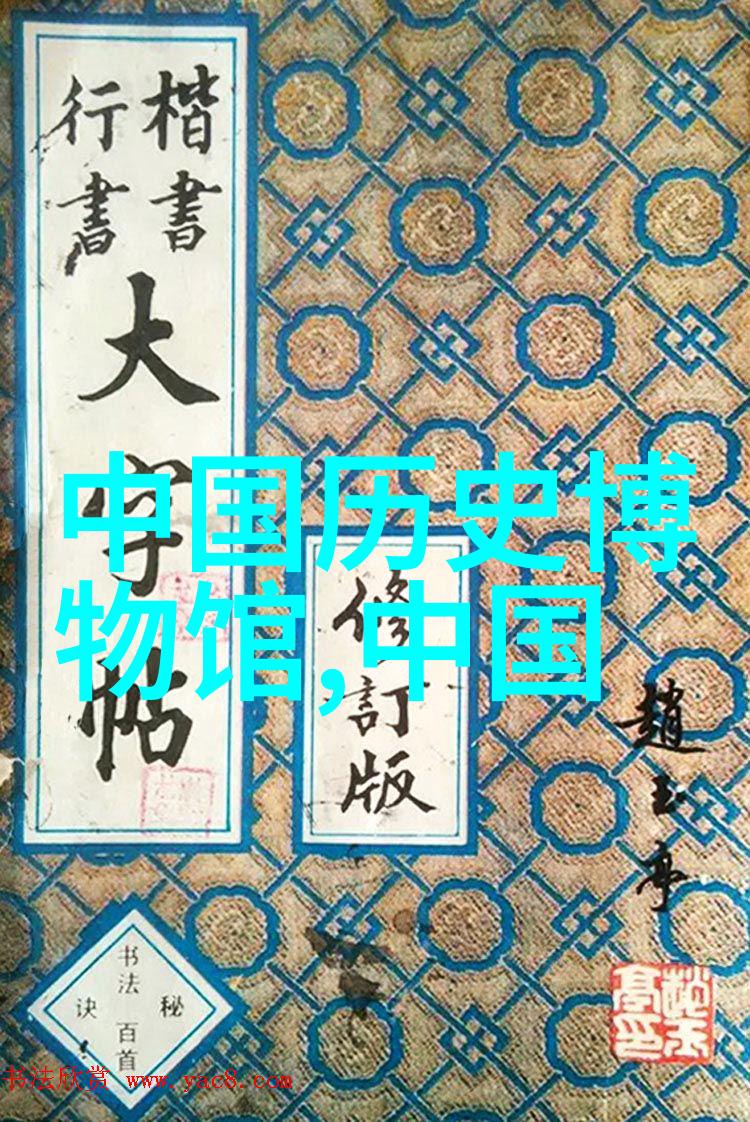 楷書
行書
大字帖
中国历史博
物馆,中国
修訂版
趙玉亭
书法百首
秘诀
书法欣赏 www.yac8.com